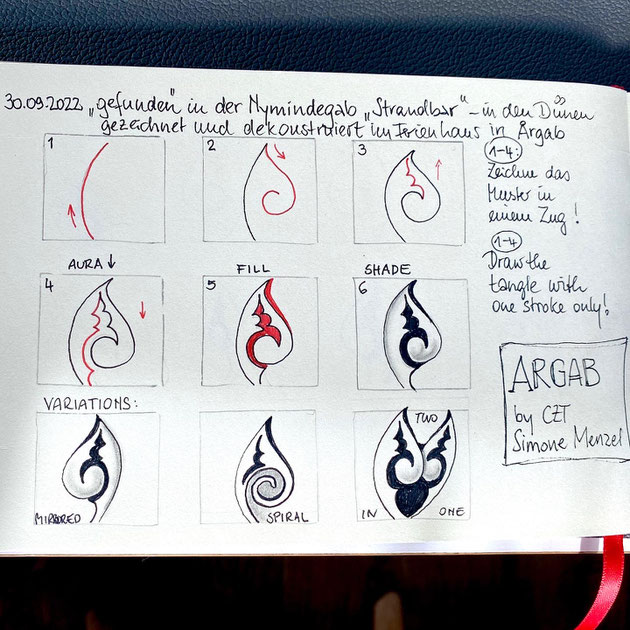 30.09.2022 „gefunden" in der Nymindegab „Strandbar" – in den Dünen
gezeichnet und dekonstruiert im Ferienhaus in Argab
1
2
3
1–4:
Zeichne das
Muster in
einem Zug!
1–4
Draw the
tangle with
one stroke only!
AURA ↓
FILL
SHADE
4
5
6
ARGAB
by CZT
Simone Menzel
VARIATIONS:
MIRRORED
SPIRAL
TWO
IN ONE